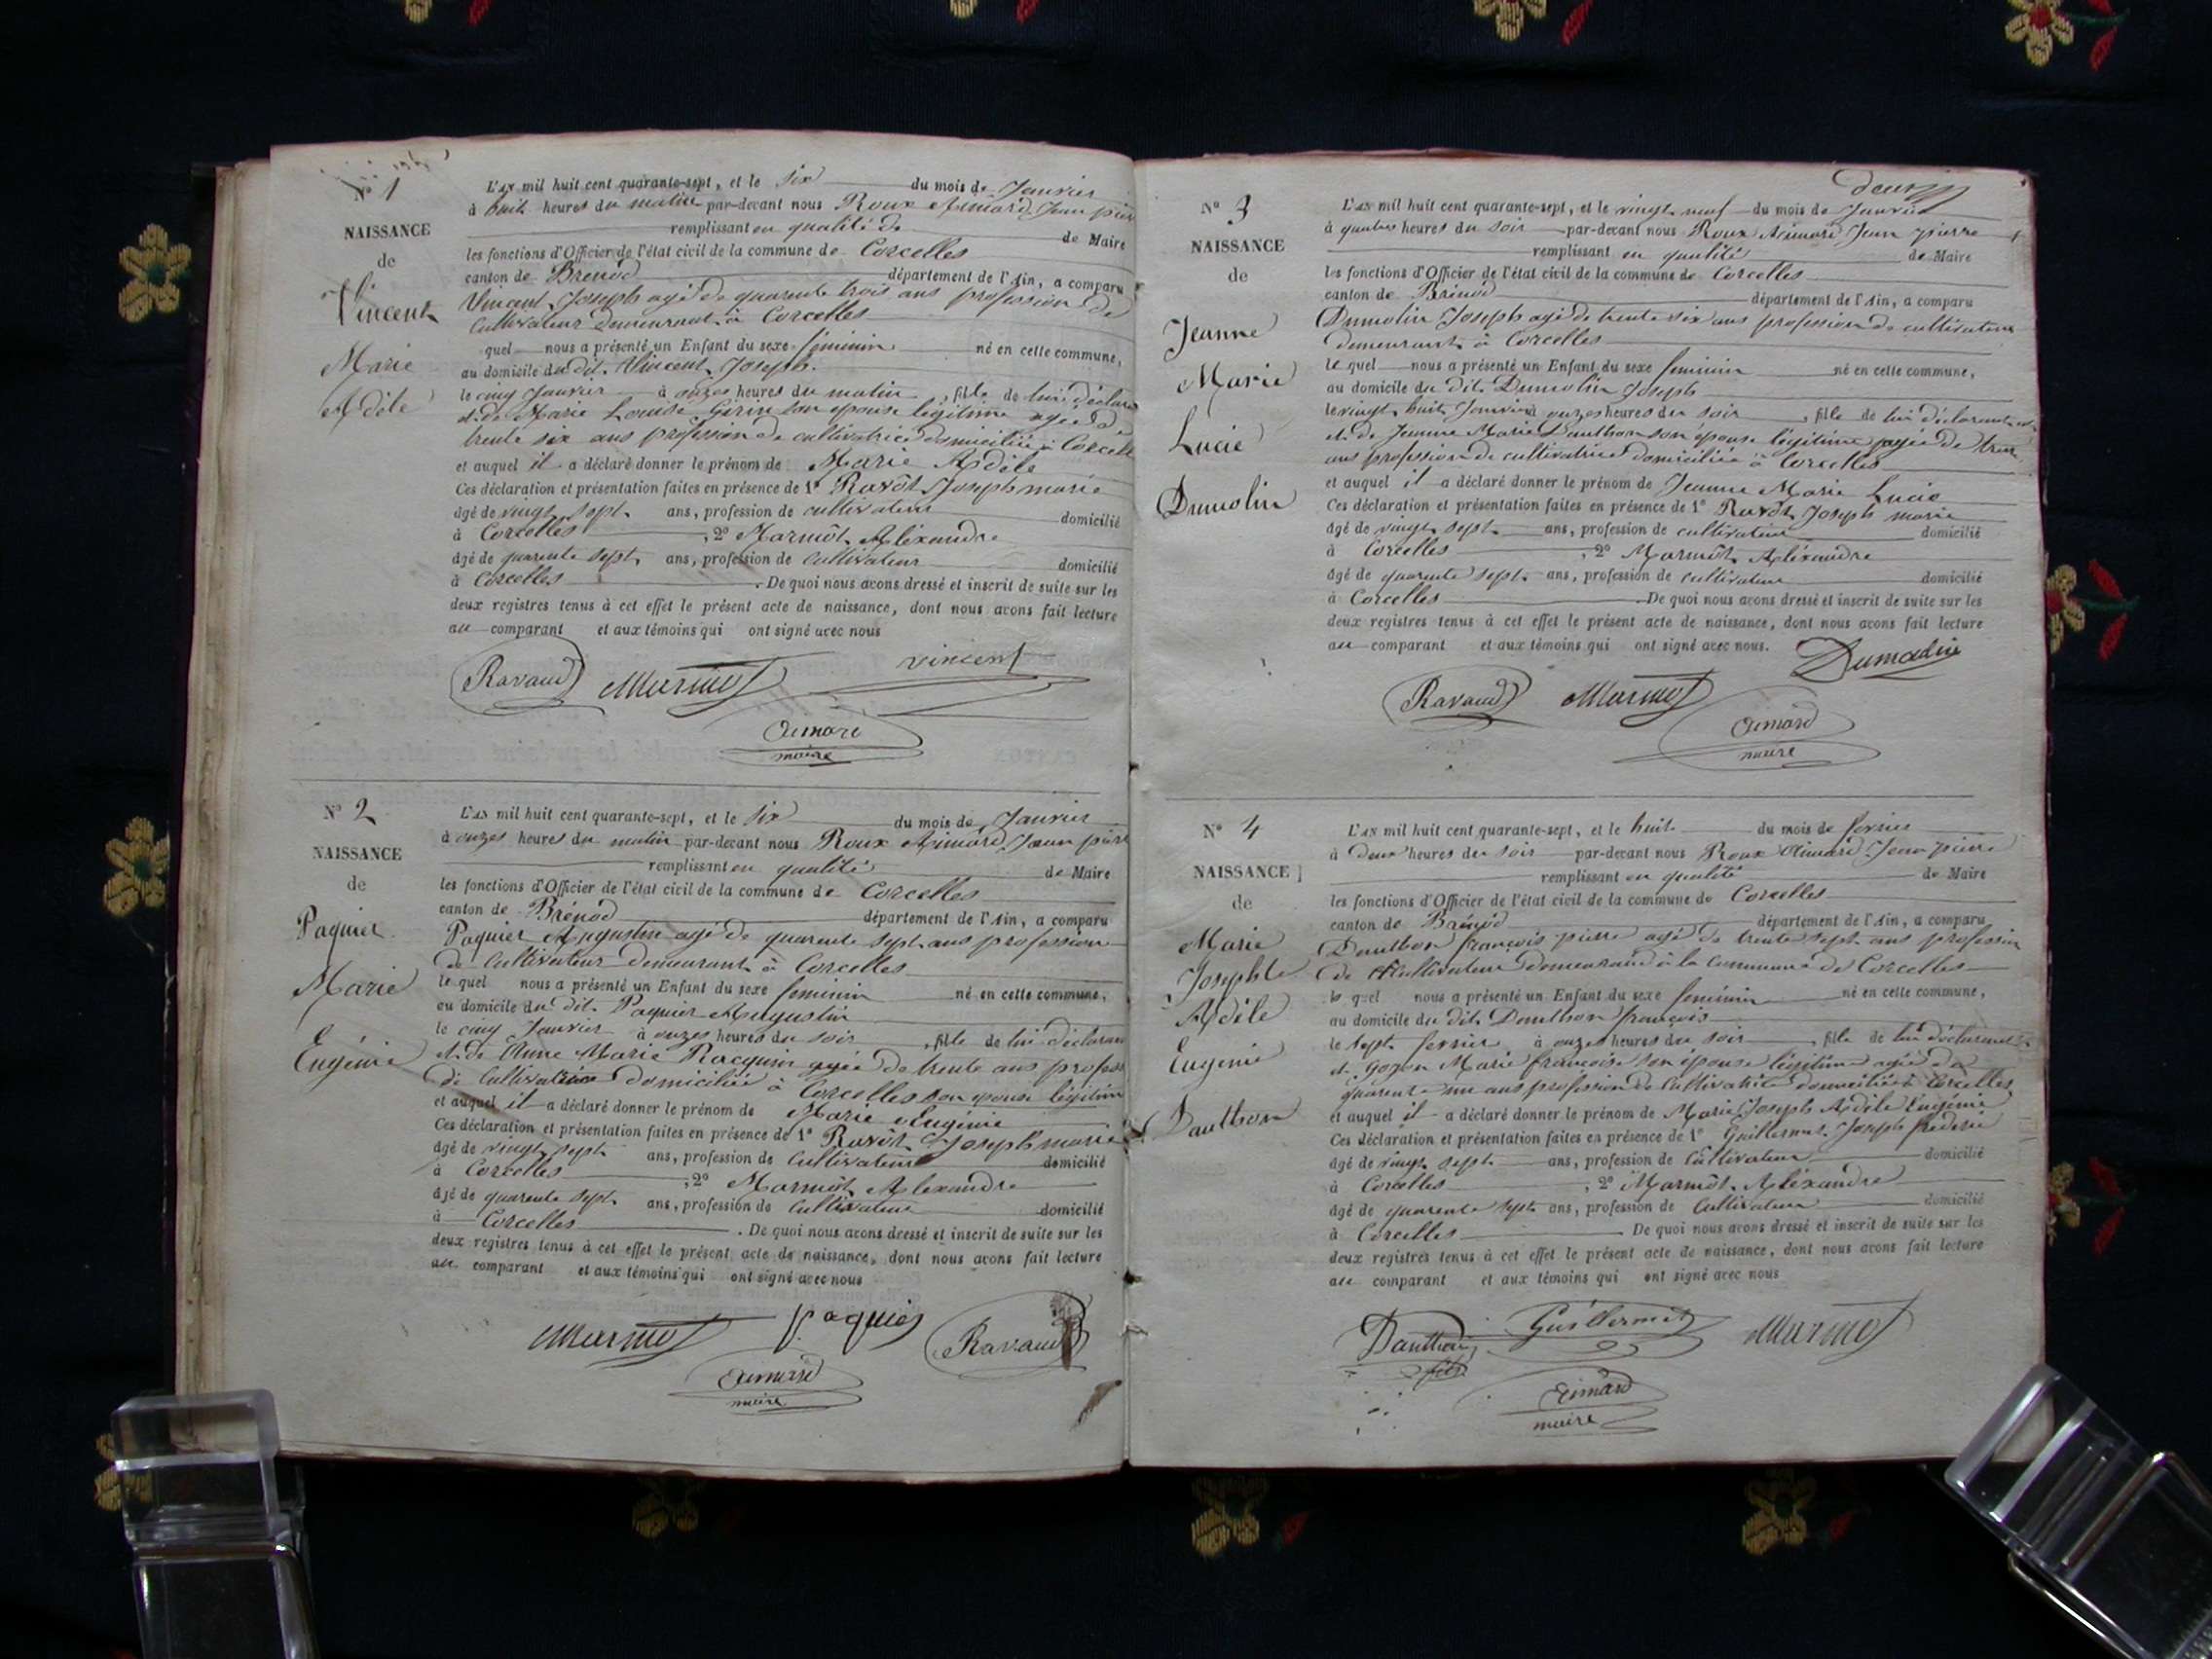 No 1
NAISSANCE
de
Vincent
Marie
Adèle
L'AN mil huit cent quarante-sept, et le six du mois de Janvier
à huit heures du matin par-devant nous Roux Aimard Jean pierre
remplissant en qualité de de Maire
les fonctions d'Officier de l'état civil de la commune de Corcelles
canton de Brenod département de l'Ain, a comparu
Vincent Joseph agé de quarente trois ans profession de
cultivateur demeurant à Corcelles
quel nous a présenté un Enfant du sexe féminin né en cette commune,
au domicile du dit Vincent Joseph
le cinq Janvier à onzes heures du matin, fille de lui déclarant
et de Marie Louise Girin son épouse légitime agée de
trente six ans profession de cultivatrice domiciliée à Corcelles
et auquel il a déclaré donner le prénom de Marie Adèle
Ces déclaration et présentation faites en présence de 1° Ravôt Joseph marie
âgé de vingt sept ans, profession de cultivateur domicilié
à Corcelles, 2° Marmôt Aléxandre
âgé de quarente sept ans, profession de cultivateur domicilié
à Corcelles. De quoi nous avons dressé et inscrit de suite sur les
deux registres tenus à cet effet le présent acte de naissance, dont nous avons fait lecture
au comparant et aux témoins qui ont signé avec nous
Ravaud Marmot vincent
Aimard
maire
N° 2
NAISSANCE
de
Paquier
Marie
Eugénie
L'AN mil huit cent quarante-sept, et le six du mois de Janvier
à onzes heures du matin par-devant nous Roux Aimard Jean pierre
remplissant en qualité de Maire
les fonctions d'Officier de l'état civil de la commune de Corcelles
canton de Brénod département de l'Ain, a comparu
Paquier Augustin agé de quarente sept ans profession
de cultivateur demeurant à Corcelles
le quel nous a présenté un Enfant du sexe féminin né en cette commune,
au domicile du dit Paquier Augustin
le cinq Janvier à onzes heures du soir, fille de lui déclarant
et de Anne Marie Racquin agée de trente ans profess
de Cultivatrice domiciliée à Corcelles son épouse légitime
et auquel il a déclaré donner le prénom de Marie Eugénie
Ces déclaration et présentation faites en présence de 1° Ravôt Joseph marie
âgé de vingt sept ans, profession de Cultivateur domicilié
à Corcelles, 2° Marmôt Aléxandre
âgé de quarente sept ans, profession de Cultivateur domicilié
à Corcelles. De quoi nous avons dressé et inscrit de suite sur les
deux registres tenus à cet effet le présent acte de naissance, dont nous avons fait lecture
au comparant et aux témoins qui ont signé avec nous
Marmot Paquier Ravaud
Aimard
maire
deux
N° 3
NAISSANCE
de
Jeanne
Marie
Lucie
Dumolin
L'AN mil huit cent quarante-sept, et le vingt neuf du mois de Janvier
à quatres heures du soir par-devant nous Roux Aimard Jean pierre
remplissant en qualité de Maire
les fonctions d'Officier de l'état civil de la commune de Corcelles
canton de Brénod département de l'Ain, a comparu
Dumolin Joseph agé de trente six ans profession de cultivateur
demeurant à Corcelles
le quel nous a présenté un Enfant du sexe féminin né en cette commune,
au domicile du dit Dumolin Joseph
le vingt huit Janvier à onzes heures du soir, fille de lui déclarant
et de Jeanne Marie Dauthon son épouse légitime agée de
ans profession de cultivatrice domiciliée à Corcelles
et auquel il a déclaré donner le prénom de Jeanne Marie Lucie
Ces déclaration et présentation faites en présence de 1° Ravôt Joseph marie
âgé de vingt sept ans, profession de cultivateur domicilié
à Corcelles, 2° Marmôt Aléxandre
âgé de quarente sept ans, profession de cultivateur domicilié
à Corcelles. De quoi nous avons dressé et inscrit de suite sur les
deux registres tenus à cet effet le présent acte de naissance, dont nous avons fait lecture
au comparant et aux témoins qui ont signé avec nous. Dumolin
Ravaud Marmot
Aimard
maire
N° 4
NAISSANCE
de
Marie
Josephte
Adèle
Eugénie
Dauthon
L'AN mil huit cent quarante-sept, et le huit du mois de fevrier
à deux heures du soir par-devant nous Roux Aimard Jean pierre
remplissant en qualité de Maire
les fonctions d'Officier de l'état civil de la commune de Corcelles
canton de Brénod département de l'Ain, a comparu
Dauthon françois pierre agé de trente sept ans profession
de Cultivateur demeurand à la Commune de Corcelles
le quel nous a présenté un Enfant du sexe féminin né en cette commune,
au domicile du dit Dauthon françois
le sept fevrier à onzes heures du soir, fille de lui déclarent
et Goyon Marie françoise son épouse légitime agée de
quarente un ans profession de Cultivatrice domiciliée à Corcelles
et auquel il a déclaré donner le prénom de Marie Joseph Adèle Eugénie
Ces déclaration et présentation faites en présence de 1° Guillermet Joseph frédéric
âgé de vingt sept ans, profession de Cultivateur domicilié
à Corcelles, 2° Marmôt Aléxandre
âgé de quarente sept ans, profession de Cultivateur domicilié
à Corcelles. De quoi nous avons dressé et inscrit de suite sur les
deux registres tenus à cet effet le présent acte de naissance, dont nous avons fait lecture
au comparant et aux témoins qui ont signé avec nous
Dauthon Guillermet Marmot
fils
Aimard
maire